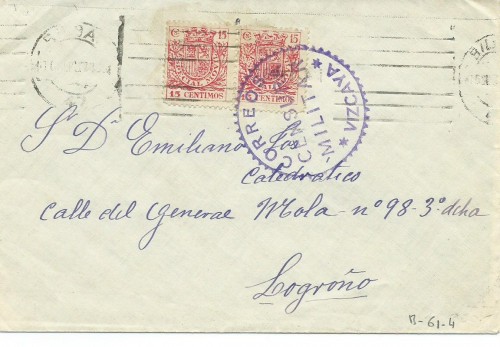 15 15
15 CENTIMOS CENTIMOS
CORREOS
CENSURA
MILITAR
★ VIZCAYA ★
Sr Dn Emiliano
Catedratico
Calle del General Mola - nº 98-3º dcha
Logroño
B-61-4